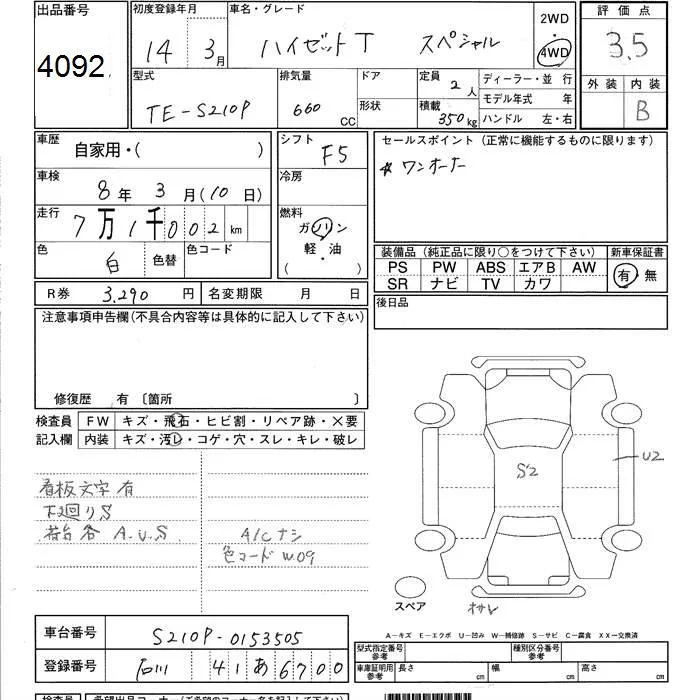 出品番号
4092
初度登録年月
14年3月
車名・グレード
ハイゼットT スペシャル
2WD
4WD
評価点
3.5
型式
TE-S210P
排気量
660 CC
ドア
形状
定員 2人
積載 350kg
ディーラー・並行
モデル年式 年
ハンドル 左・右
外装 内装
B
車歴
自家用・( )
シフト
F5
セールスポイント(正常に機能するものに限ります)
※ワンオーナー
車検
8年3月(10日)
冷房
走行
7万1千002km
燃料
ガソリン
軽・油
( ・ )
色
白
色替
色コード
装備品(純正品に限り○をつけて下さい)
新車保証書
PS PW ABS エアB AW
SR ナビ TV カワ
有 無
R券 3,290円
名変期限 月 日
後日品
注意事項申告欄(不具合内容等は具体的に記入して下さい)
修復歴 有〔箇所 〕
検査員
記入欄
FW キズ・飛石・ヒビ割・リペア跡・×要
内装 キズ・汚レ・コゲ・穴・スレ・キレ・破レ
看板文字有
下廻りS
荷台各 A.U.S
A/Cナシ
色コード W09
S2
U2
スペア
オサレ
A-キズ E-エクボ U-凹み W-補修跡 S-サビ C-腐食 XX-交換済
車台番号
S210P-0153505
登録番号
石川 41 あ 6700
型式指定番号
参考
種別区分番号
参考
車庫証明用
参考
長さ cm
幅 cm
高さ cm
検査員
希望出品コーナー(ご希望のコーナー名を記入して下さい)